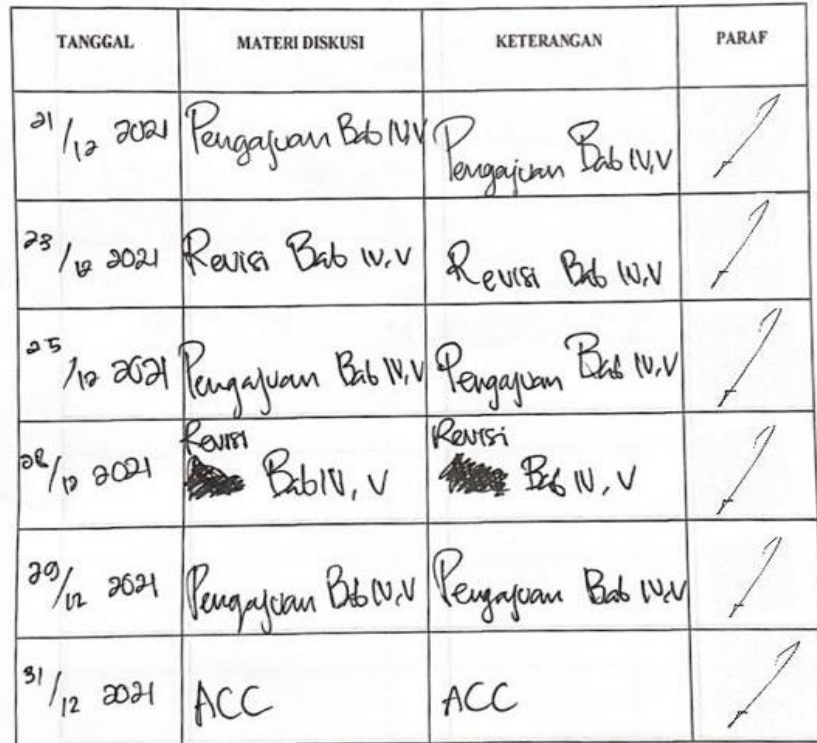 TANGGAL MATERI DISKUSI KETERANGAN PARAF
21/12 2021 Pengajuan Bab IV,V Pengajuan Bab IV,V
23/12 2021 Revisi Bab IV,V Revisi Bab IV,V
25/12 2021 Pengajuan Bab IV,V Pengajuan Bab IV,V
Revisi Revisi
28/12 2021 Bab IV, V Bab IV, V
29/12 2021 Pengajuan Bab IV,V Pengajuan Bab IV,V
31/12 2021 ACC ACC